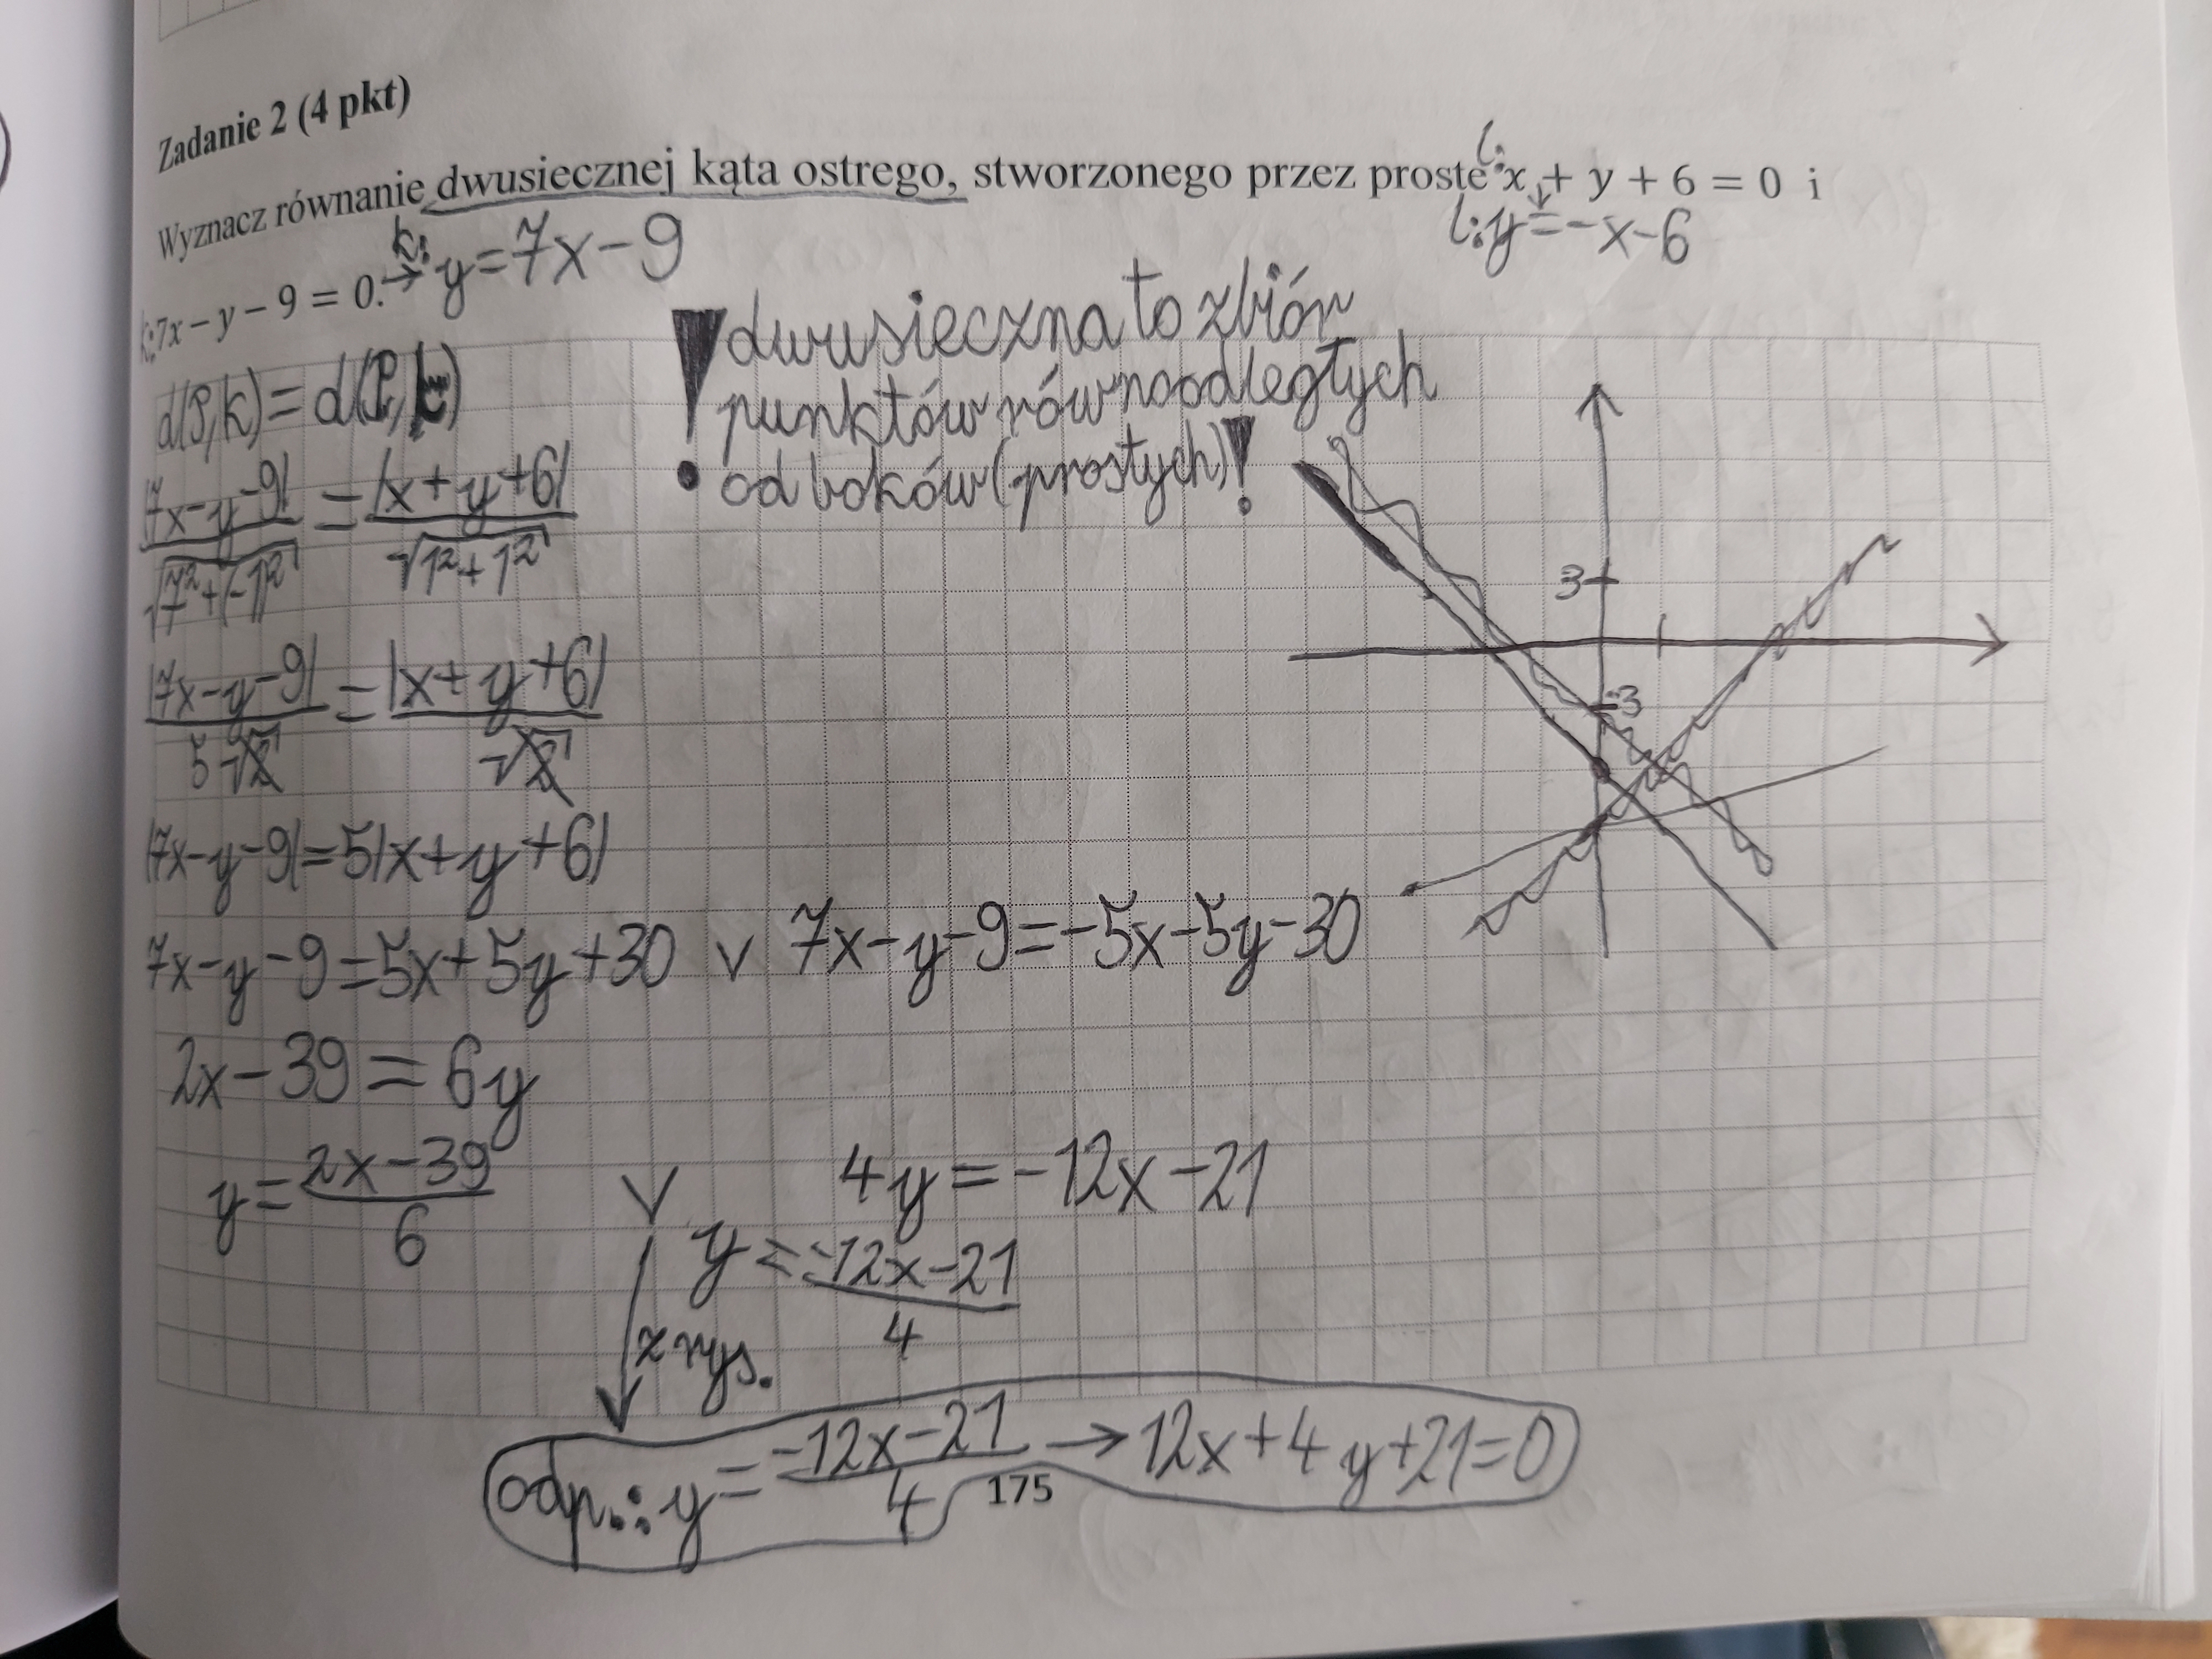 Zadanie 2 (4 pkt)
l:
Wyznacz równanie dwusiecznej kąta ostrego, stworzonego przez proste x + y + 6 = 0 i
l: y = -x - 6
k: 7x - y - 9 = 0. → k: y = 7x - 9
! dwusieczna to zbiór
punktów równoodległych
od boków (prostych)!
d(P,k) = d(P,l)
|7x-y-9| / √(7²+(-1)²) = |x+y+6| / √(1²+1²)
|7x-y-9| / 5√2 = |x+y+6| / √2
|7x-y-9| = 5|x+y+6|
7x-y-9 = 5x+5y+30 ∨ 7x-y-9 = -5x-5y-30
2x-39 = 6y
y = (2x-39)/6 ∨ 4y = -12x-21
y = (-12x-21)/4
z rys.
odp.: y = (-12x-21)/4 → 12x+4y+21=0
175
3
-3